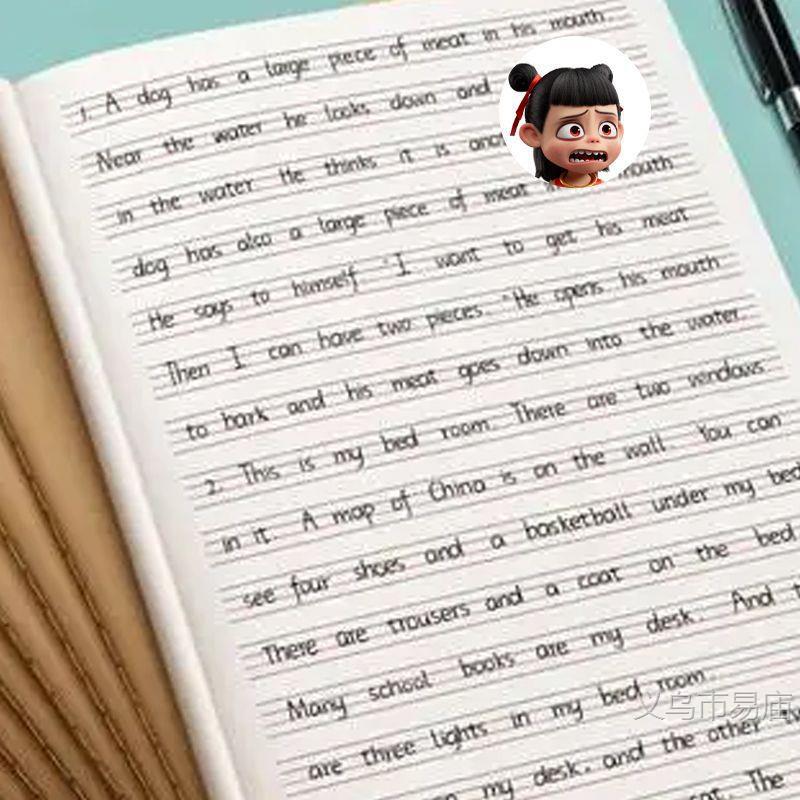 1. A dog has a large piece of meat in his mouth.
Near the water he looks down and
in the water He thinks it is
dog has also a large piece of meat mouth
He says to himself "I want to get his meat
Then I can have two pieces. "He opens his mouth
to bark and his meat goes down into the water.
2. This is my bed room. There are two windows
in it. A map of China is on the wall. You can
see four shoes and a basketball under my bed
There are trousers and a coat on the bed
Many school books are my desk. And
are three lights in my bed room.
my desk. and the other
The
义乌市易庙